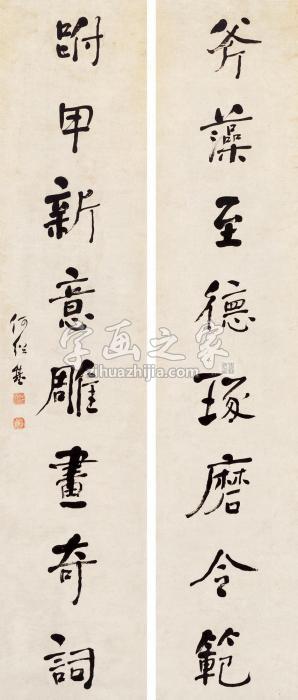 斧藻至德琢磨令範
跗甲新意雕畫奇詞
何紹基
字画之家
zihuazhijia.com